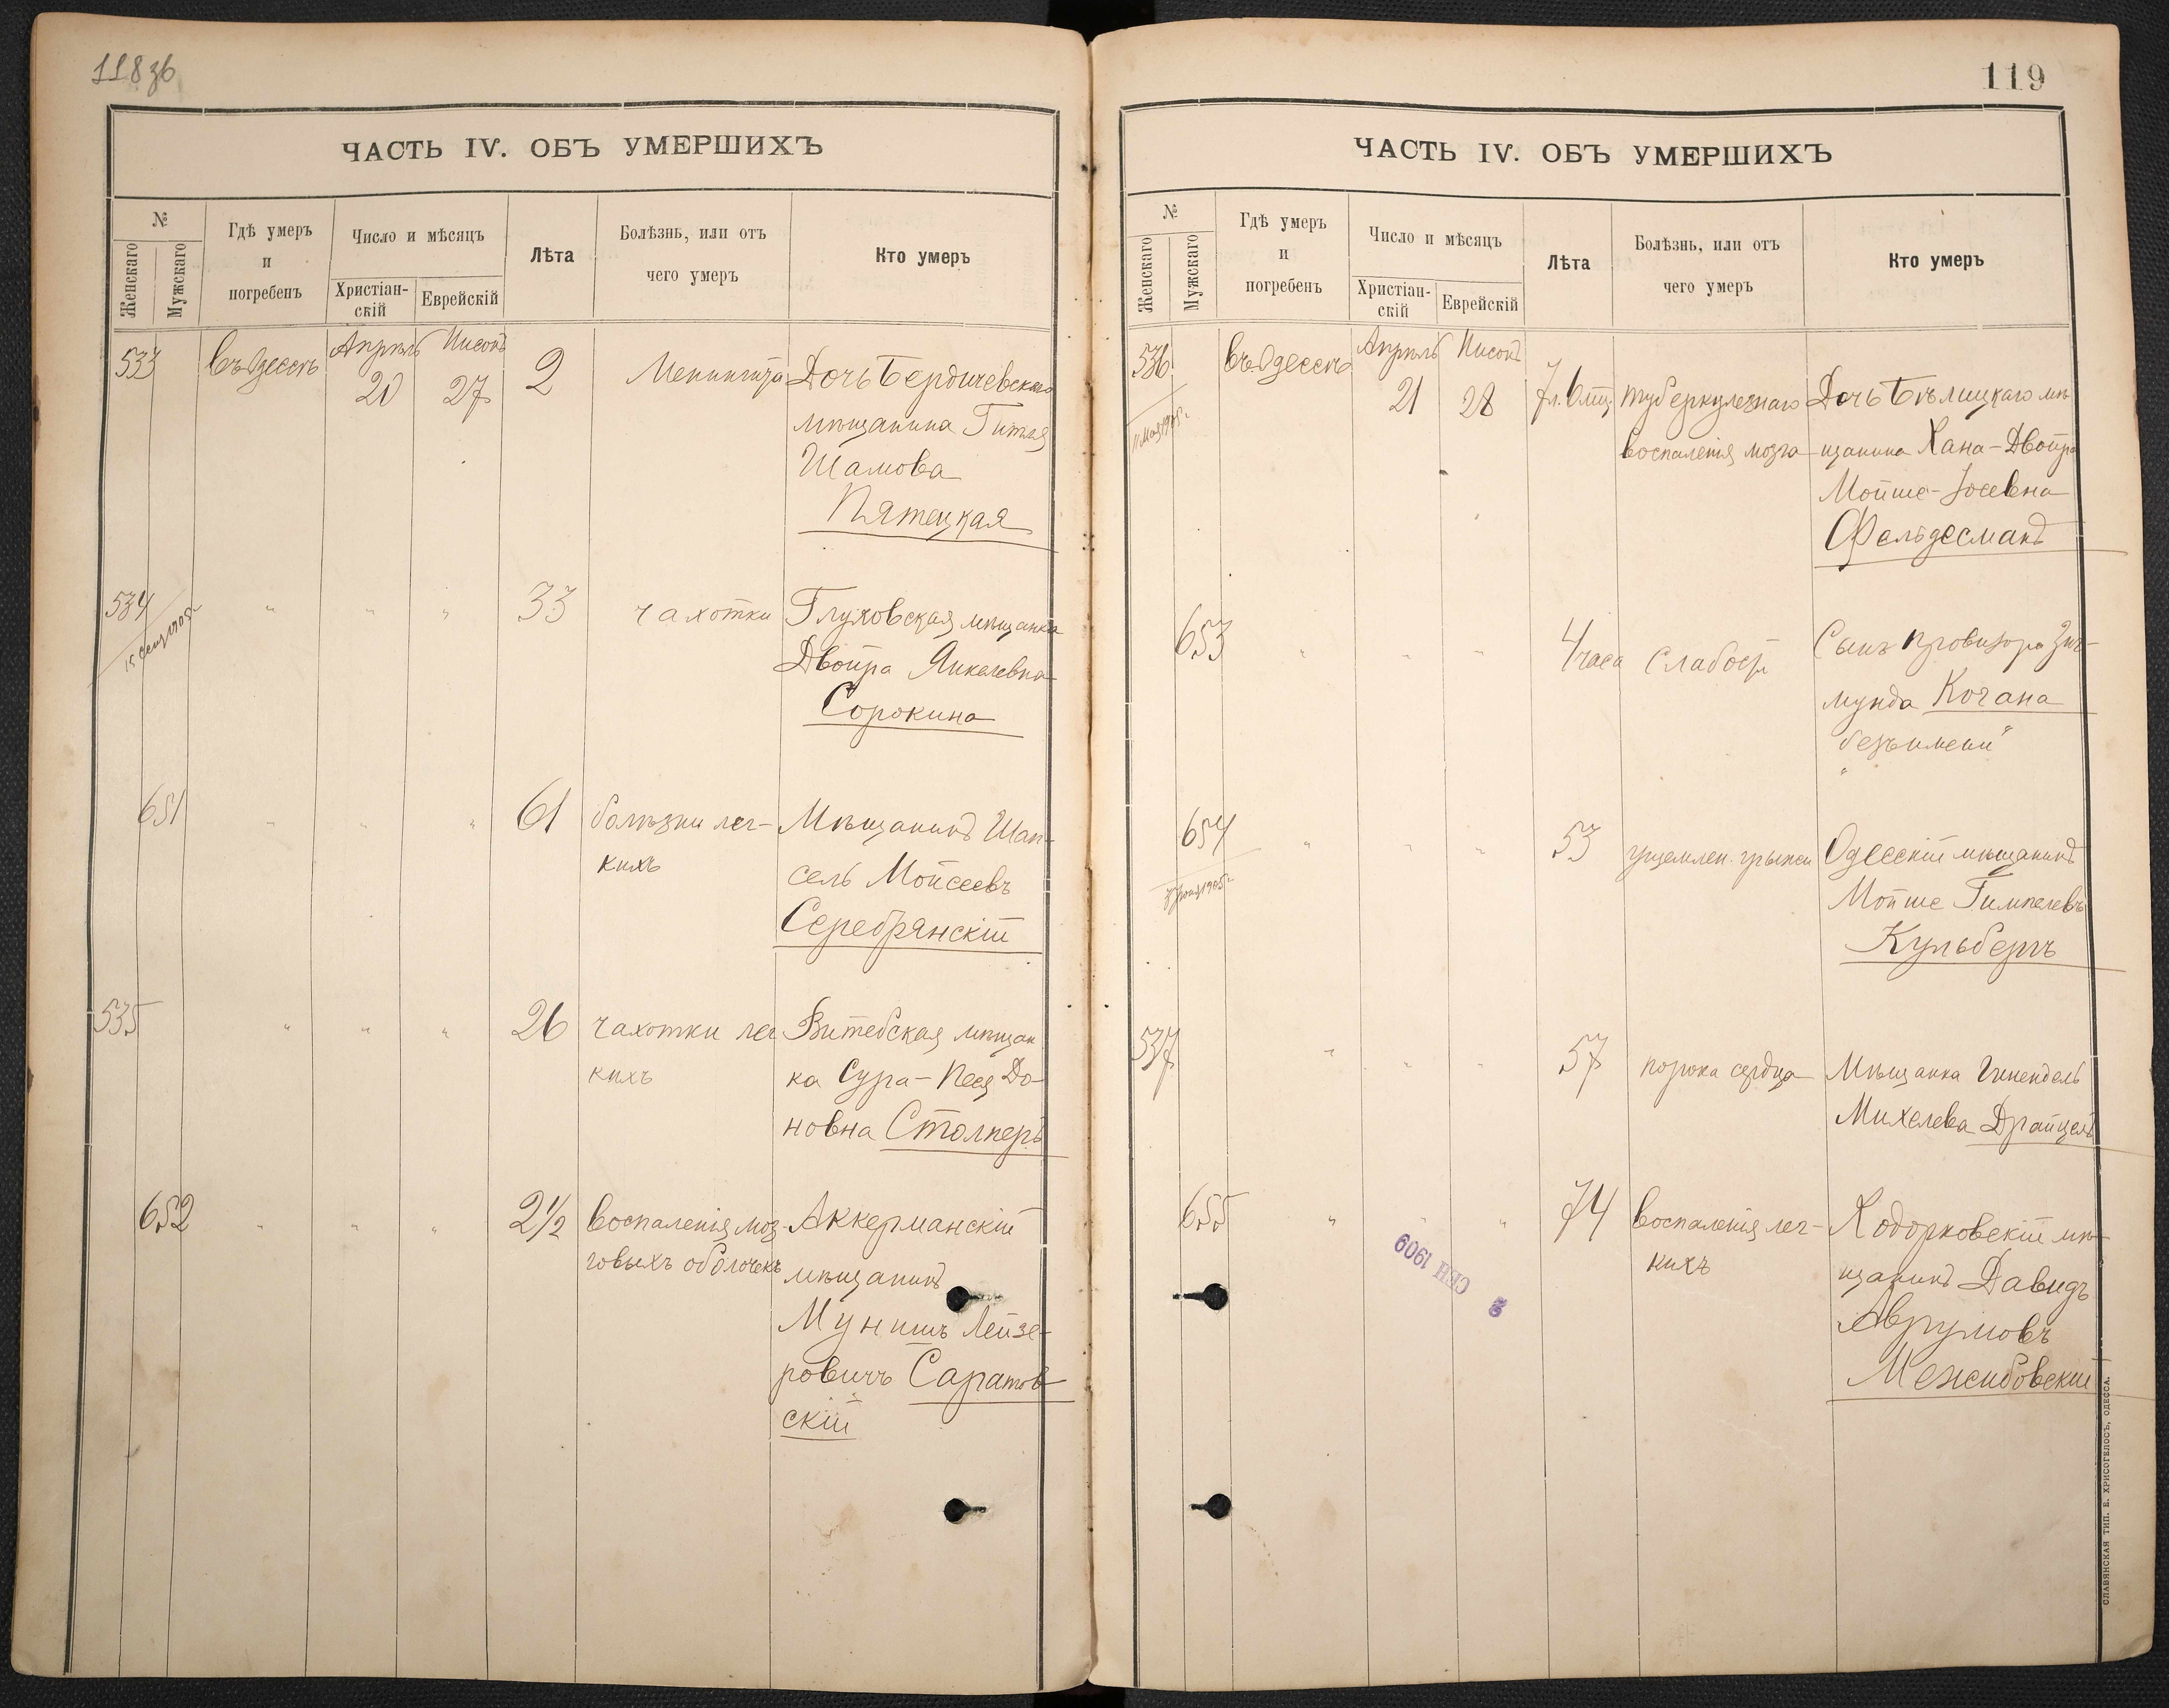 118 зв
ЧАСТЬ IV. ОБЪ УМЕРШИХЪ
№
Женскаго
Мужскаго
Гдѣ умеръ
и
погребенъ
Число и мѣсяцъ
Христіан-
скій
Еврейскій
Лѣта
Болѣзнь, или отъ
чего умеръ
Кто умеръ
533
въ Одессѣ
Апрѣль
20
Нисонъ
27
2
Менингита
Дочь Бердичевскаго
мѣщанина Гитля
Шамова
Пятецкая
534
15 Сент 1905 г
" " "
33
чахотки
Глуховская мѣщанка
Двойра Янкелевна
Сорокина
651
" " "
61
болѣзни лег-
кихъ
Мѣщанинъ Шап-
сель Мойсеевъ
Серебрянскій
535
" " "
26
чахотки лег
кихъ
Витебская мѣщан
ка Сура-Песя До-
новна Столперъ
652
" " "
2½
воспаленія моз-
говыхъ оболочекъ
Аккерманскій
мѣщанинъ
Мунишъ Лейзе-
ровичъ Саратов
скій
119
ЧАСТЬ IV. ОБЪ УМЕРШИХЪ
№
Женскаго
Мужскаго
Гдѣ умеръ
и
погребенъ
Число и мѣсяцъ
Христіан-
скій
Еврейскій
Лѣта
Болѣзнь, или отъ
чего умеръ
Кто умеръ
536
11 Мая 1905 г.
въ Одессѣ
Апрѣль
21
Нисонъ
28
7 л. 6 мѣц.
туберкулезнаго
воспаленія мозга
Дочь Бѣлицкаго мѣ
щанина Хана-Двойра
Мойше-Іосевна
Фельдесманъ
653
" " "
4 часа
слабост
Сынъ провизора Зиг-
мунда Когана
"безъ имени"
654
1905 г.
" " "
53
ущемлен. грыжи
Одесскій мѣщанинъ
Мойше Гимпелевъ
Кульбергъ
537
" " "
57
порока сердца
Мѣщанка Гинендель
Михелева Драйцель
655
" " "
74
воспаленія лег-
кихъ
Ходорковскій мѣ-
щанинъ Давидъ
Аврумовъ
Межибовскій
2 СЕН 1909
СЛАВЯНСКАЯ ТИП. Е. ХРИСОГЕЛОСЪ, ОДЕССА.